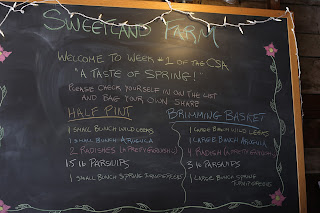 SWEETLAND FARM
WELCOME TO WEEK #1 OF THE CSA
"A TASTE OF SPRING!"
PLEASE CHECK YOURSELF IN ON THE LIST
AND BAG YOUR OWN SHARE
HALF PINT
1 SMALL BUNCH WILD LEEKS
1 SMALL BUNCH ARUGULA
2 RADISHES (A PRETTY
1.5 lb PARSNIPS
1 SMALL BUNCH SPRING TURNIP GREENS
BRIMMING BASKET
1 LARGE BUNCH WILD LEEKS
1 LARGE BUNCH ARUGULA
4 RADISH (A PRETTY
3 lb PARSNIPS
1 LARGE BUNCH SPRING
TURNIP GREENS